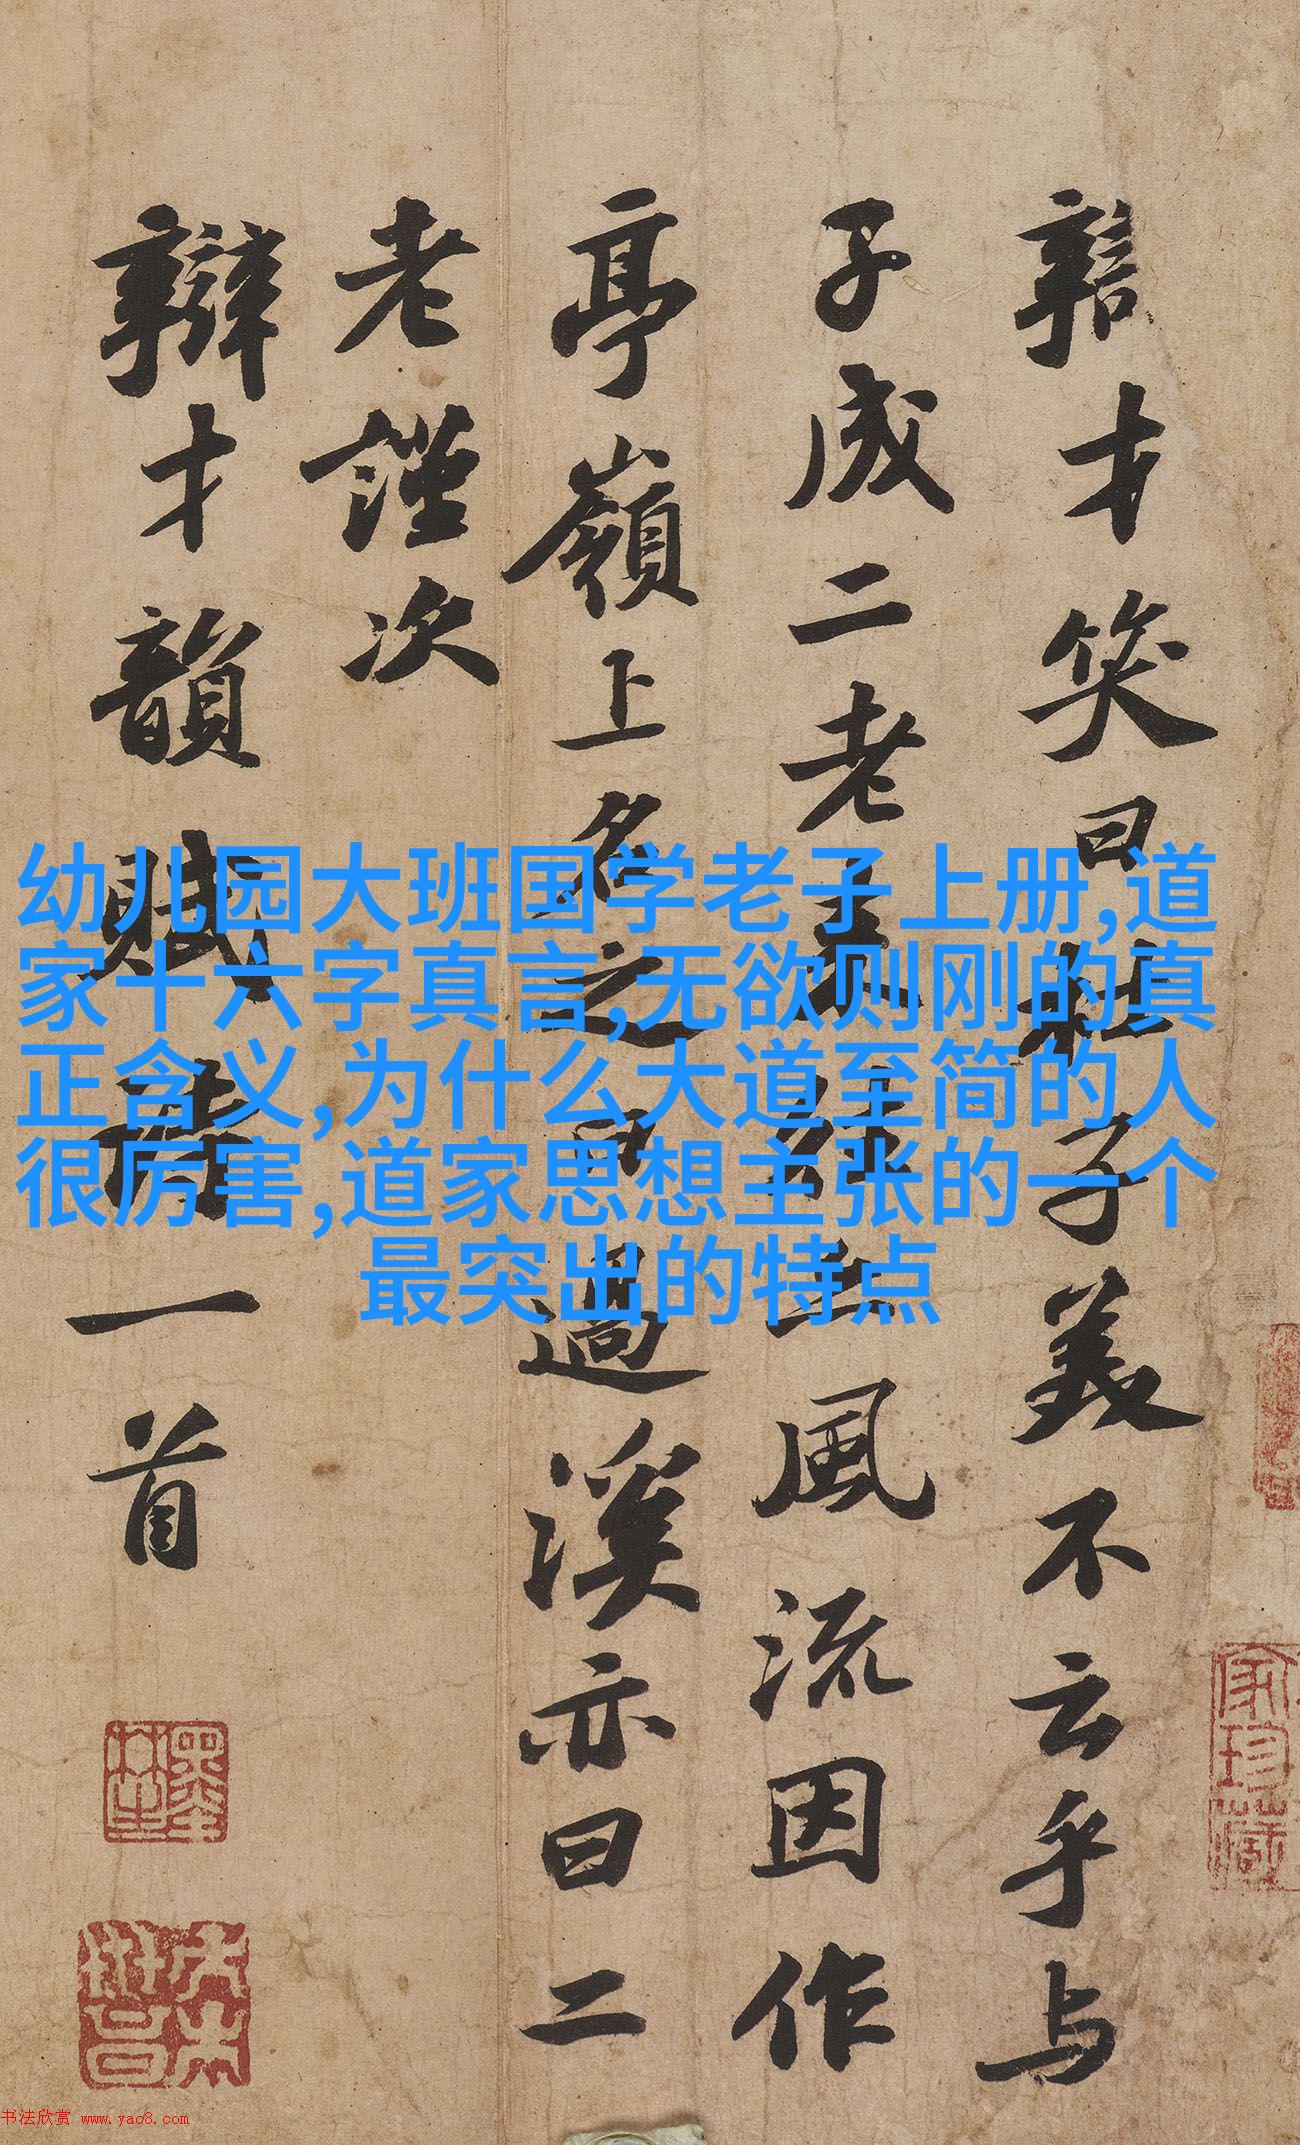 辯才笑曰杜子美不云乎与
子成二老来往亦風流因作
亭嶺上名之曰過溪亦曰二
老謹次
辯才韻賦詩一首
幼儿园大班国学老子上册,道
家十六字真言,无欲则刚的真
正含义,为什么大道至简的人
很厉害,道家思想主张的一个
最突出的特点
家珍藏
书法欣赏 www.yac8.com